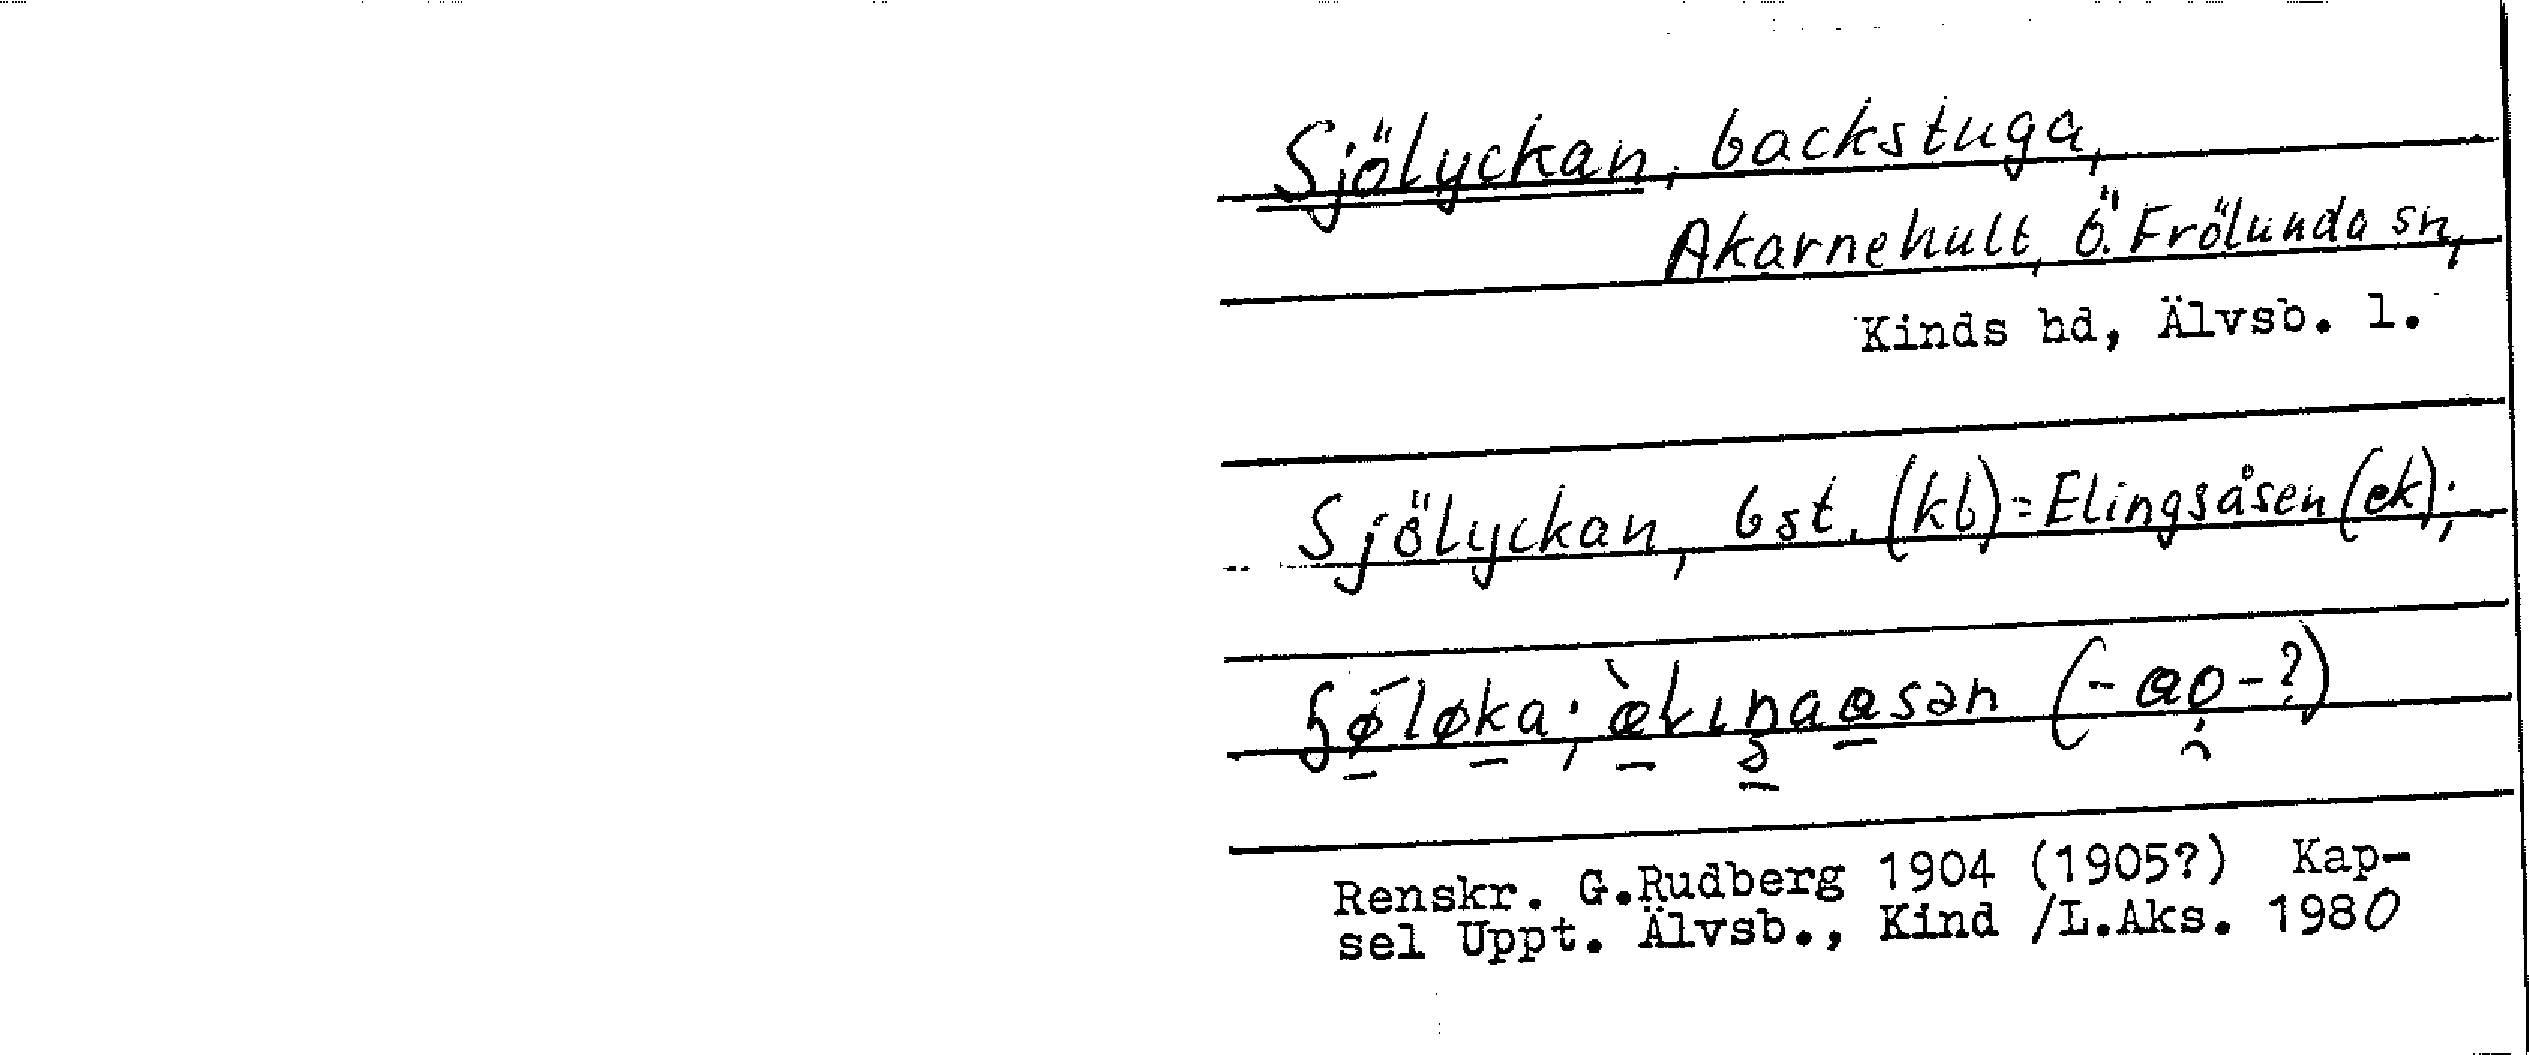 Sjölyckan, backstuga,
Akarnehult, Ö. Frölunda sn,
Kinds hd, Älvsb. l.
Sjölyckan, bst. (kb) = Elingsåsen (ek);
(-ao-?)
Renskr. G.Rudberg 1904 (1905?) Kap-
sel Uppt. Älvsb., Kind /L.Aks. 1980